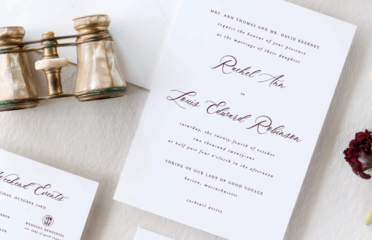 MRS. ANN THOMAS AND MR. DAVID KEARNEY
request the honour of your presence
at the marriage of their daughter
Rachel Ann
to
Louis Edward Robinson
saturday, the twenty-fourth of october
two thousand twenty-one
at half past four o'clock in the afternoon
SHRINE OF OUR LADY OF GOOD VOYAGE
boston, massachusetts
cocktail attire
Weekend Events